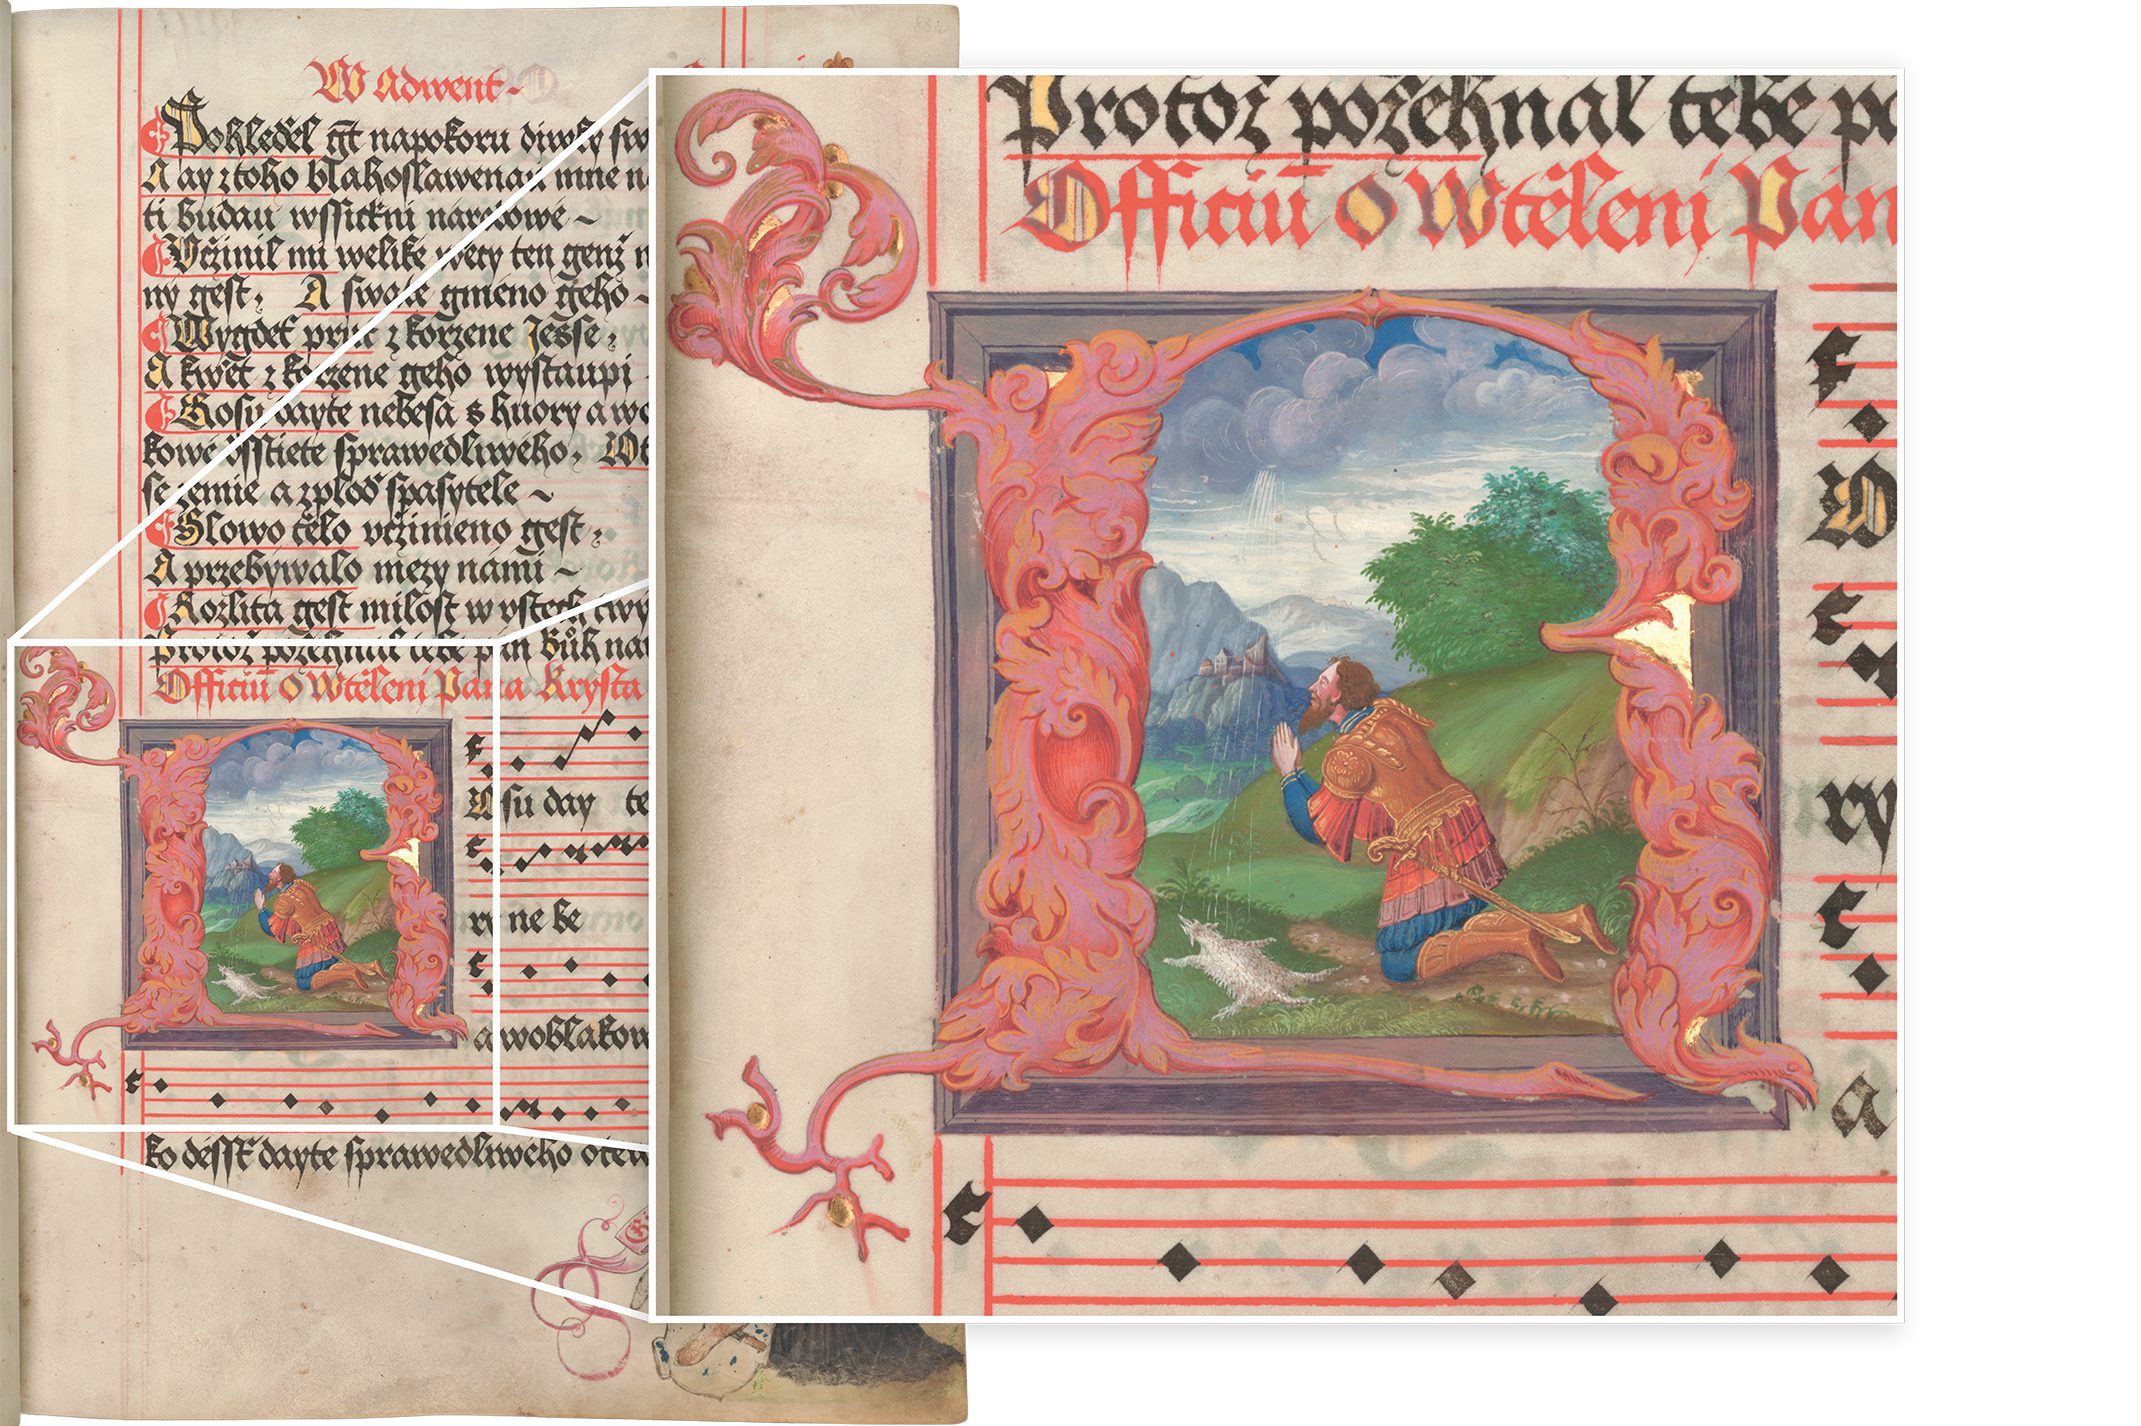 W Adwent
Pohleděl gt napokoru diwky sw
A ay ztoho blahoslawenau mne n
ti budau wssickni narodowe
Vcžinil mi welike wecy ten genž m
ny gest, A swate gmeno geho
Wygdet prut z kořzene Jesse,
A kwět z kořzene geho wystaupi
Rosu dayte nebesa s huory a wo
kowe dsstiete sprawedliweho, Wt
se zemie a zploď spasytele
Slowo tělo včžinieno gest,
A przebywalo mezy nami
Rozlita gest milost w vstech twy
Protož požehnal tebe pan Bůh na
Officiū o Wtěleni Pana Krysta
su day te
ry ne be
a woblakow
ko dessť dayte sprawedliweho otew
Protož požehnal tebe po
Officiū o Wtěleni Pan
W
ry
a